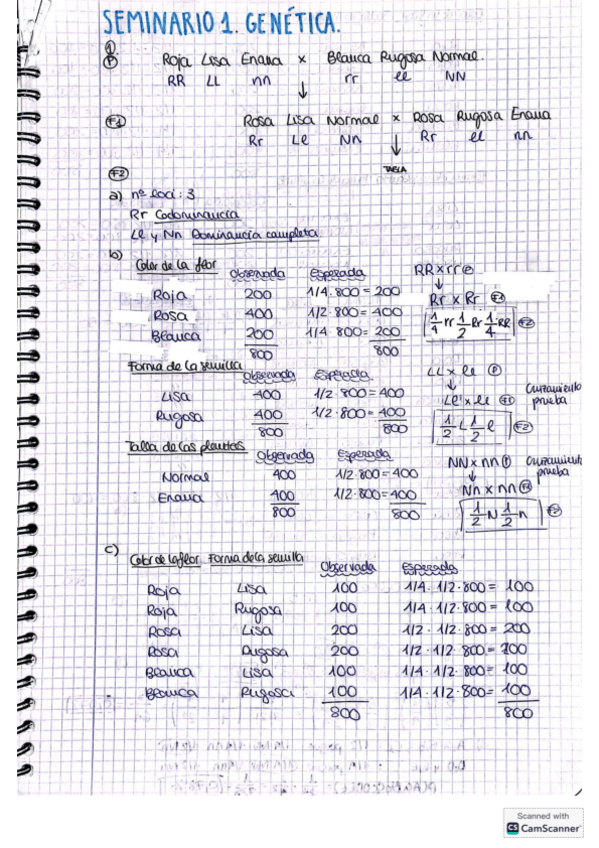 SEMINARIO 1. GENÉTICA.
1.
P Roja Lisa Enana x Blanca Rugosa Normal.
RR LL nn rr ll NN
↓
F1 Rosa Lisa Normal x Rosa Rugosa Enana
Rr Ll Nn Rr ll nn
↓
F2 TABLA
a) nº loci: 3
Rr Codominancia
Ll y Nn Dominancia completa
b) Color de la flor Observada Esperada RR x rr P
↓
Roja 200 1/4·800 = 200 Rr x Rr F1
Rosa 400 1/2·800 = 400 1/4 rr 1/2 Rr 1/4 RR F2
Blanca 200 1/4·800 = 200
800 800
Forma de la semilla Observada Esperada LL x ll P
↓
Lisa 400 1/2·800 = 400 Ll x ll F1 Cruzamiento prueba
Rugosa 400 1/2·800 = 400 1/2 L 1/2 l F2
800 800
Talla de las plantas Observada Esperada NN x nn P Cruzamiento prueba
↓
Normal 400 1/2·800 = 400 Nn x nn F1
Enana 400 1/2·800 = 400 1/2 N 1/2 n F2
800 800
c) Color de la flor Forma de la semilla Observada Esperada
Roja Lisa 100 1/4·1/2·800 = 100
Roja Rugosa 100 1/4·1/2·800 = 100
Rosa Lisa 200 1/2·1/2·800 = 200
Rosa Rugosa 200 1/2·1/2·800 = 200
Blanca Lisa 100 1/4·1/2·800 = 100
Blanca Rugosa 100 1/4·1/2·800 = 100
800 800
Scanned with
CS CamScanner